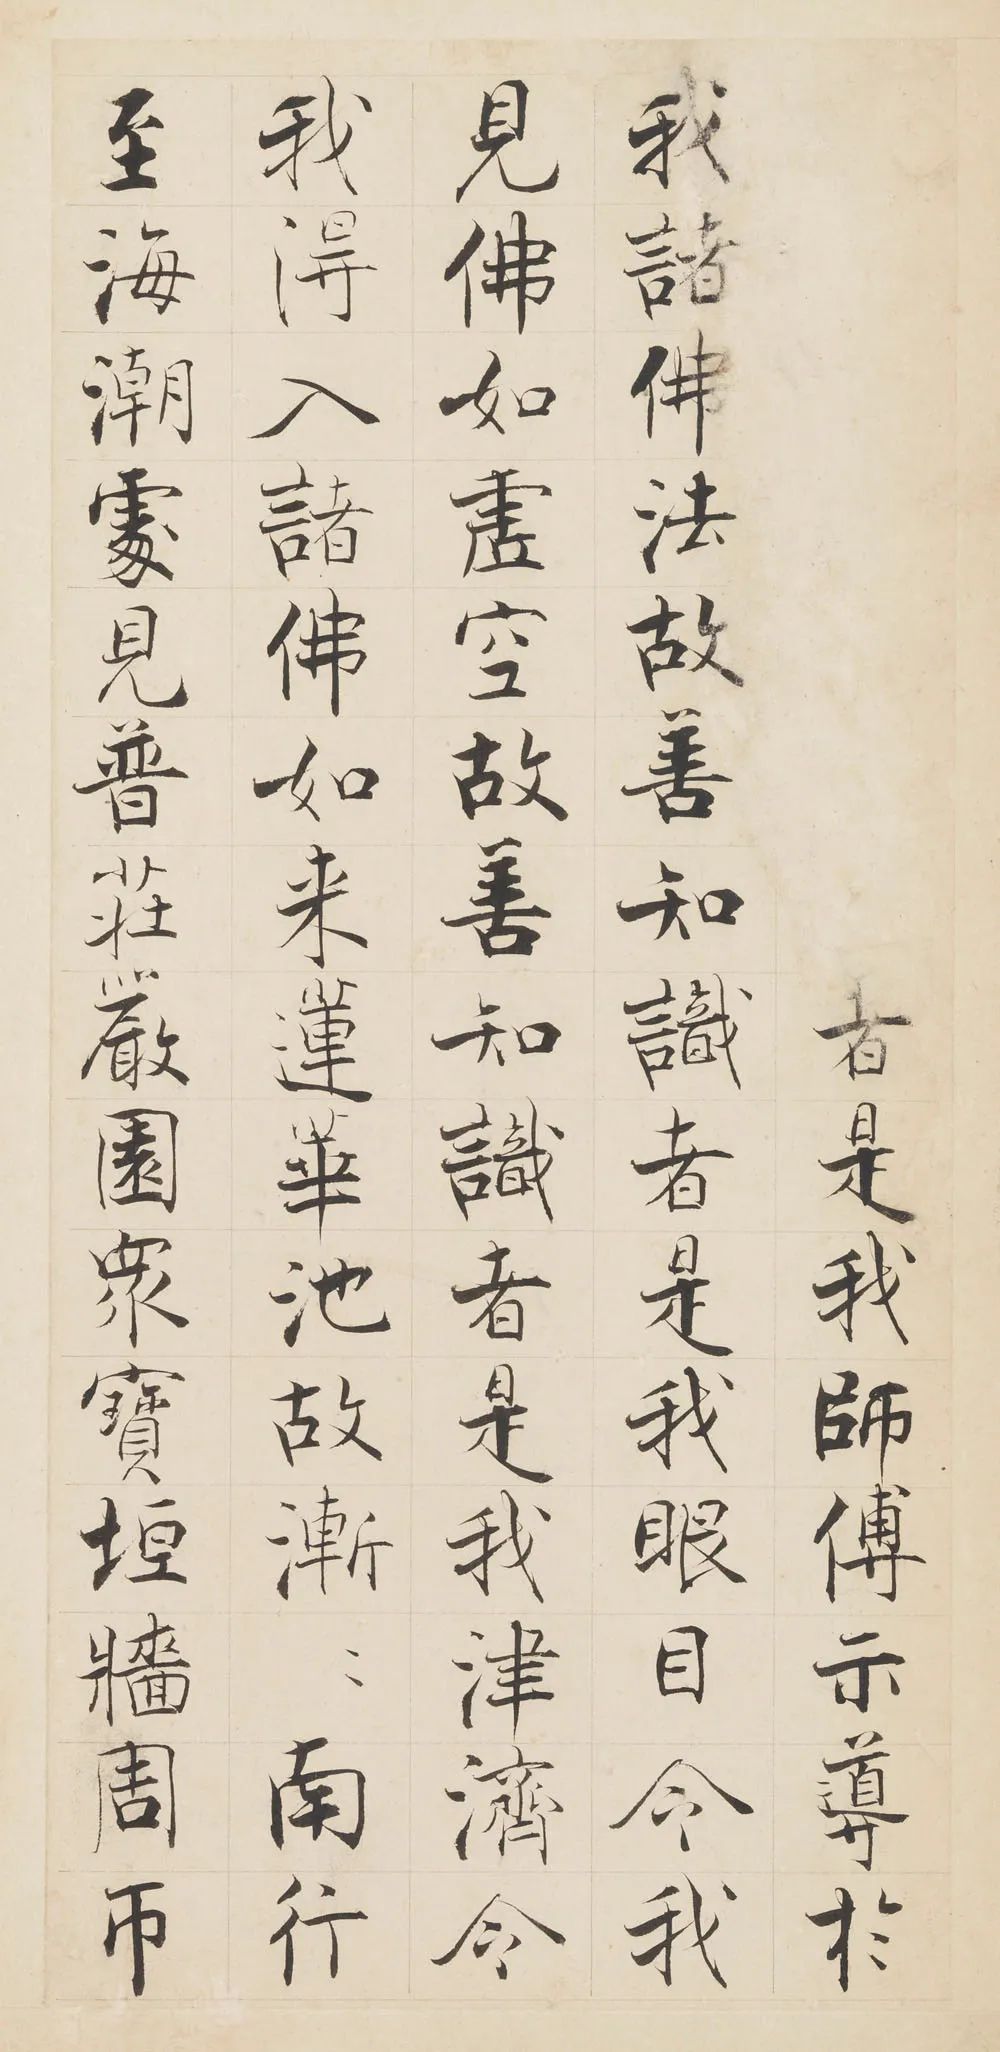 者是我師傅示導於
我諸佛法故善知識者是我眼目令我
見佛如虛空故善知識者是我津濟令
我得入諸佛如来蓮華池故漸〻南行
至海潮處見普莊嚴園眾寶垣牆周帀